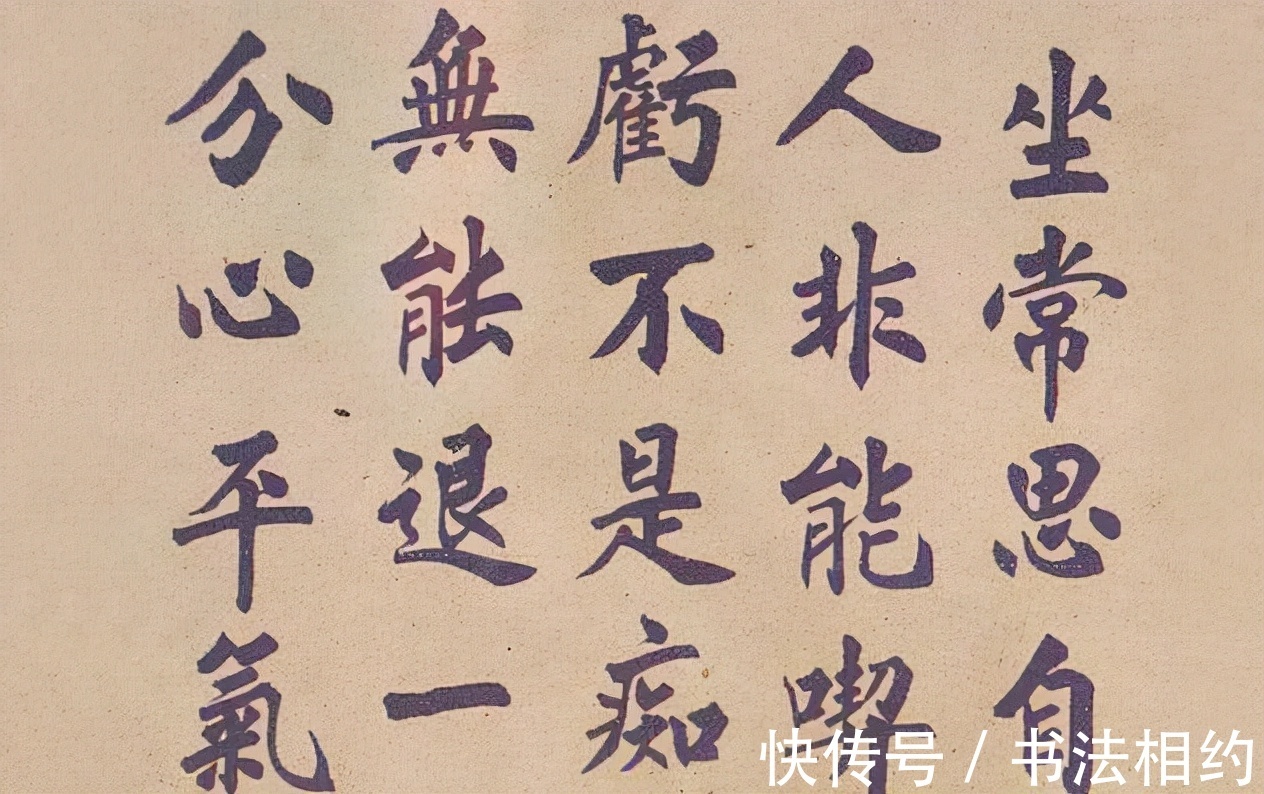 坐常思自
人非能喫
虧不是痴
無能退一
分心平氣
快传号 / 书法相约